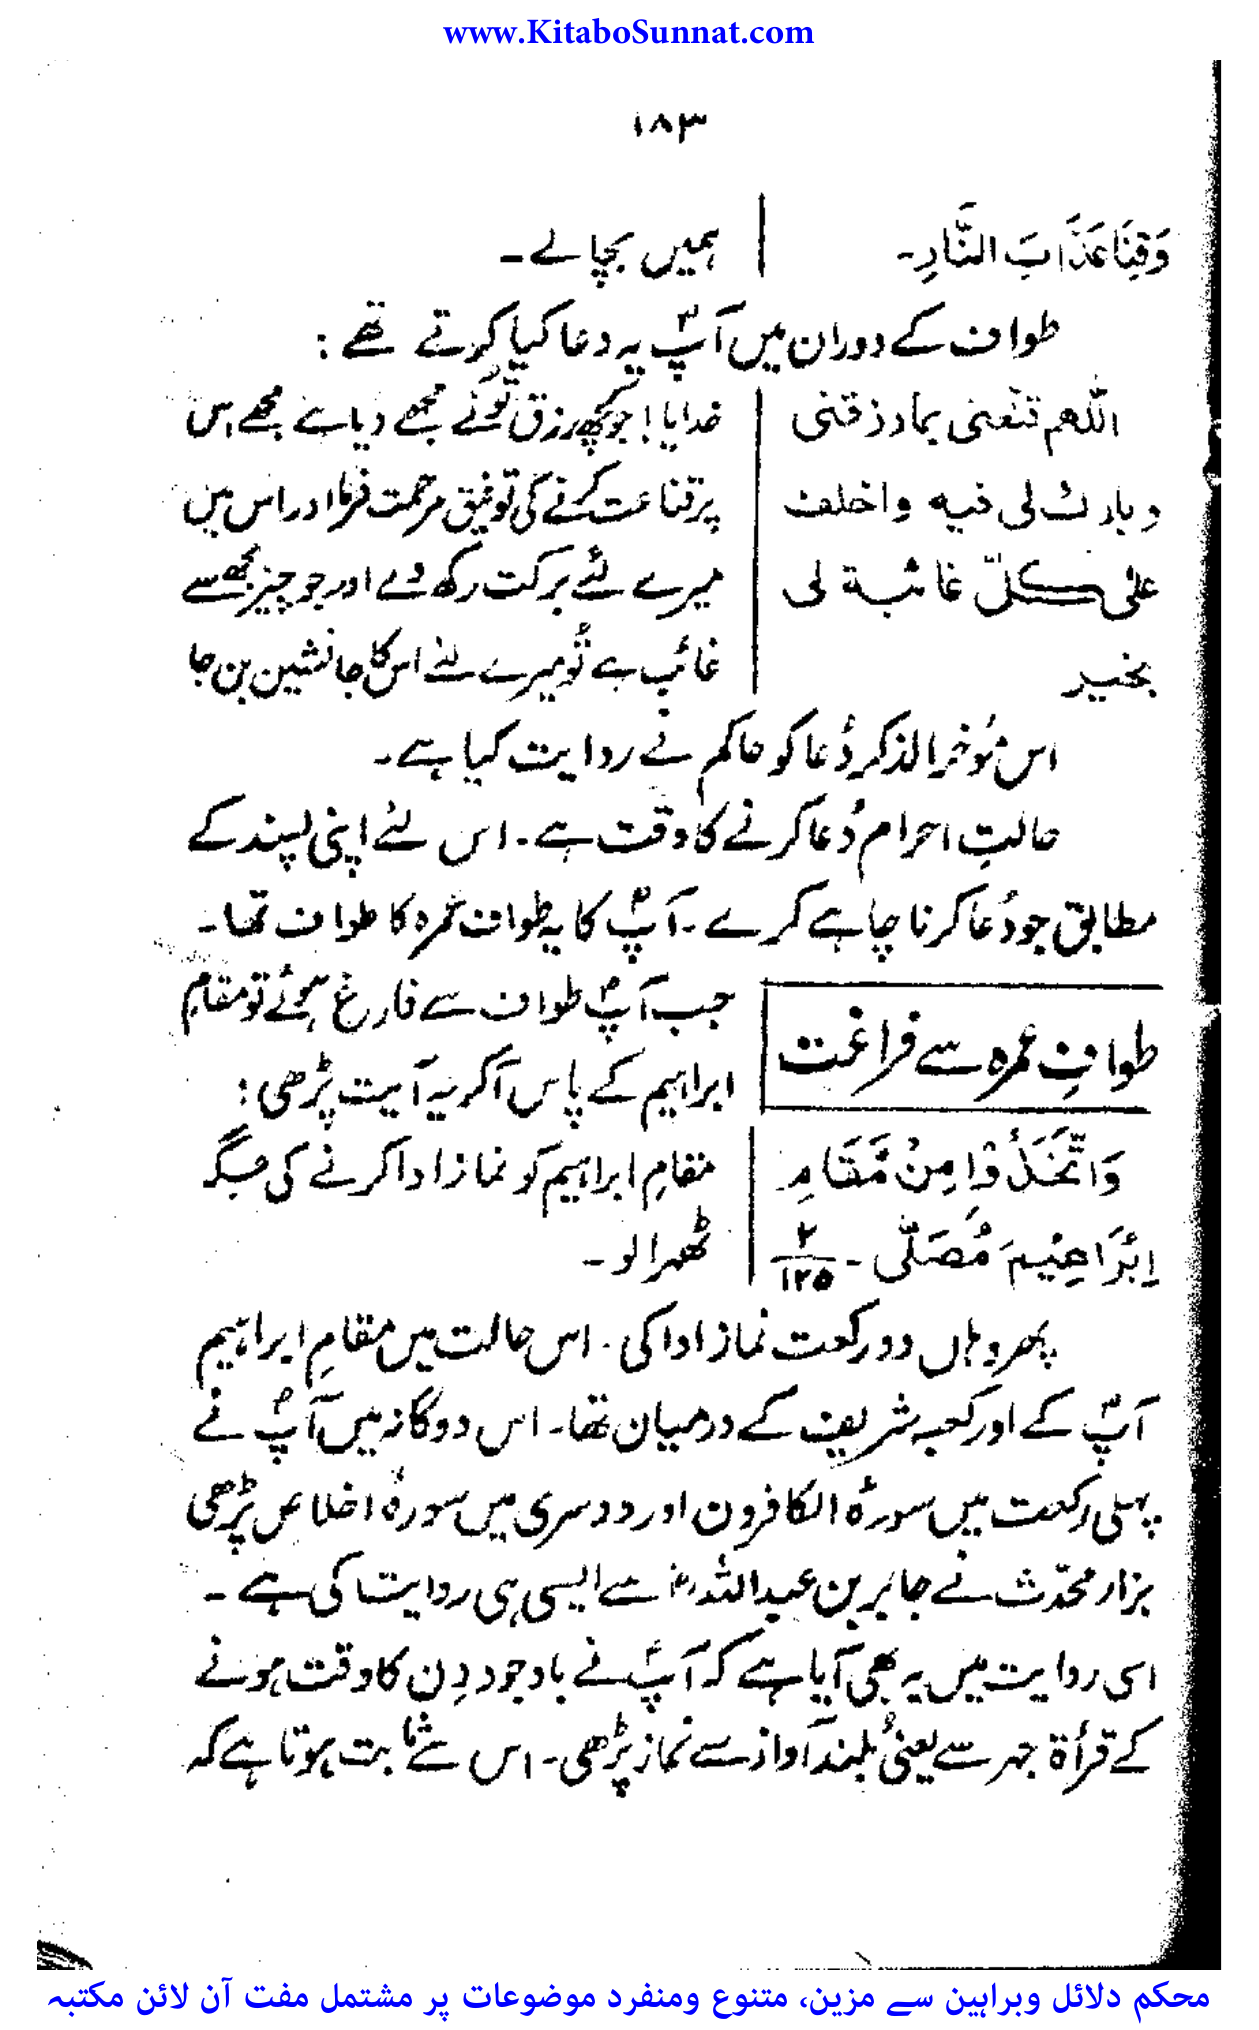 www.KitaboSunnat.com
۱۸۳
وَقِنَا عَذَابَ النَّارِ۔ | ہمیں بچالے۔
طواف کے دوران میں آپؐ یہ دعا کیا کرتے تھے :
اللّٰھم قنّعنی بما رزقتنی | خدایا! جو کچھ رزق تُو نے مجھے دیا ہے مجھے اس
وبارك لی فیه واخلف | پر قناعت کرنے کی توفیق مرحمت فرما اور اس میں
علی کلّ غائبة لی | میرے لئے برکت رکھ دے اور جو چیز مجھ سے
بخیر | غائب ہے تُو میرے لئے اس کا جانشین بن جا
اس مؤخر الذکر دُعا کو حاکم نے روایت کیا ہے۔
حالتِ احرام دُعا کرنے کا وقت ہے۔ اس لئے اپنی پسند کے
مطابق جو دُعا کرنا چاہے کرے۔ آپؐ کا یہ طواف عمرہ کا طواف تھا۔
طوافِ عمرہ سے فراغت
جب آپؐ طواف سے فارغ ہوئے تو مقامِ
ابراہیم کے پاس آکر یہ آیت پڑھی :
وَاتَّخِذُوْا مِنْ مَّقَامِ | مقامِ ابراہیم کو نماز ادا کرنے کی جگہ
اِبْرَاهِيْمَ مُصَلًّى۔ ۲/۱۲۵ | ٹھہرا لو۔
پھر وہاں دو رکعت نماز ادا کی۔ اس حالت میں مقامِ ابراہیم
آپؐ کے اور کعبہ شریف کے درمیان تھا۔ اس دوگانہ میں آپؐ نے
پہلی رکعت میں سورۂ الکافرون اور دوسری میں سورۂ اخلاص پڑھی
بزار محدّث نے جابر بن عبداللہؓ سے ایسی ہی روایت کی ہے۔
اسی روایت میں یہ بھی آیا ہے کہ آپؐ نے باوجود دِن کا وقت ہونے
کے قرأۃ جہر سے یعنی بُلند آواز سے نماز پڑھی۔ اس سے ثابت ہوتا ہے کہ
محکم دلائل وبراہین سے مزین، متنوع ومنفرد موضوعات پر مشتمل مفت آن لائن مکتبہ